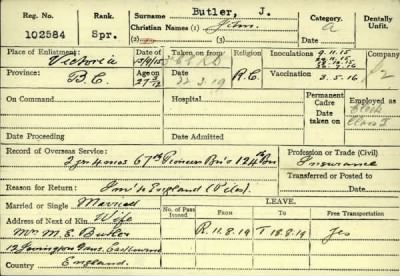 Reg. No. Rank. Surname Butler, J. Category. Dentally Unfit.
102584 Spr. Christian Names (1) John. A
(2)
Place of Enlistment: Date of Taken on from: Religion Inoculations 9.11.15 Company
Victoria 13/9/15
Province: Age on R.C. Vaccination 3.5.16
B.C. 22.3.19
On Command Hospital Permanent Cadre Date taken on Employed as
Clerk
Class I
Date Proceeding Date Admitted
Record of Overseas Service: Profession or Trade (Civil)
2 yrs 4 mos 67th Pioneer Bn 124th Bn Insurance
Reason for Return: Transferred or Posted to
Inv'd England (Piles).
Married or Single Married No. of Pass Issued LEAVE. Free Transportation
Address of Next of Kin Wife FROM TO Date
Mrs. M. E. Butler R. 11.8.19 T 18.8.19 Yes
Country England.